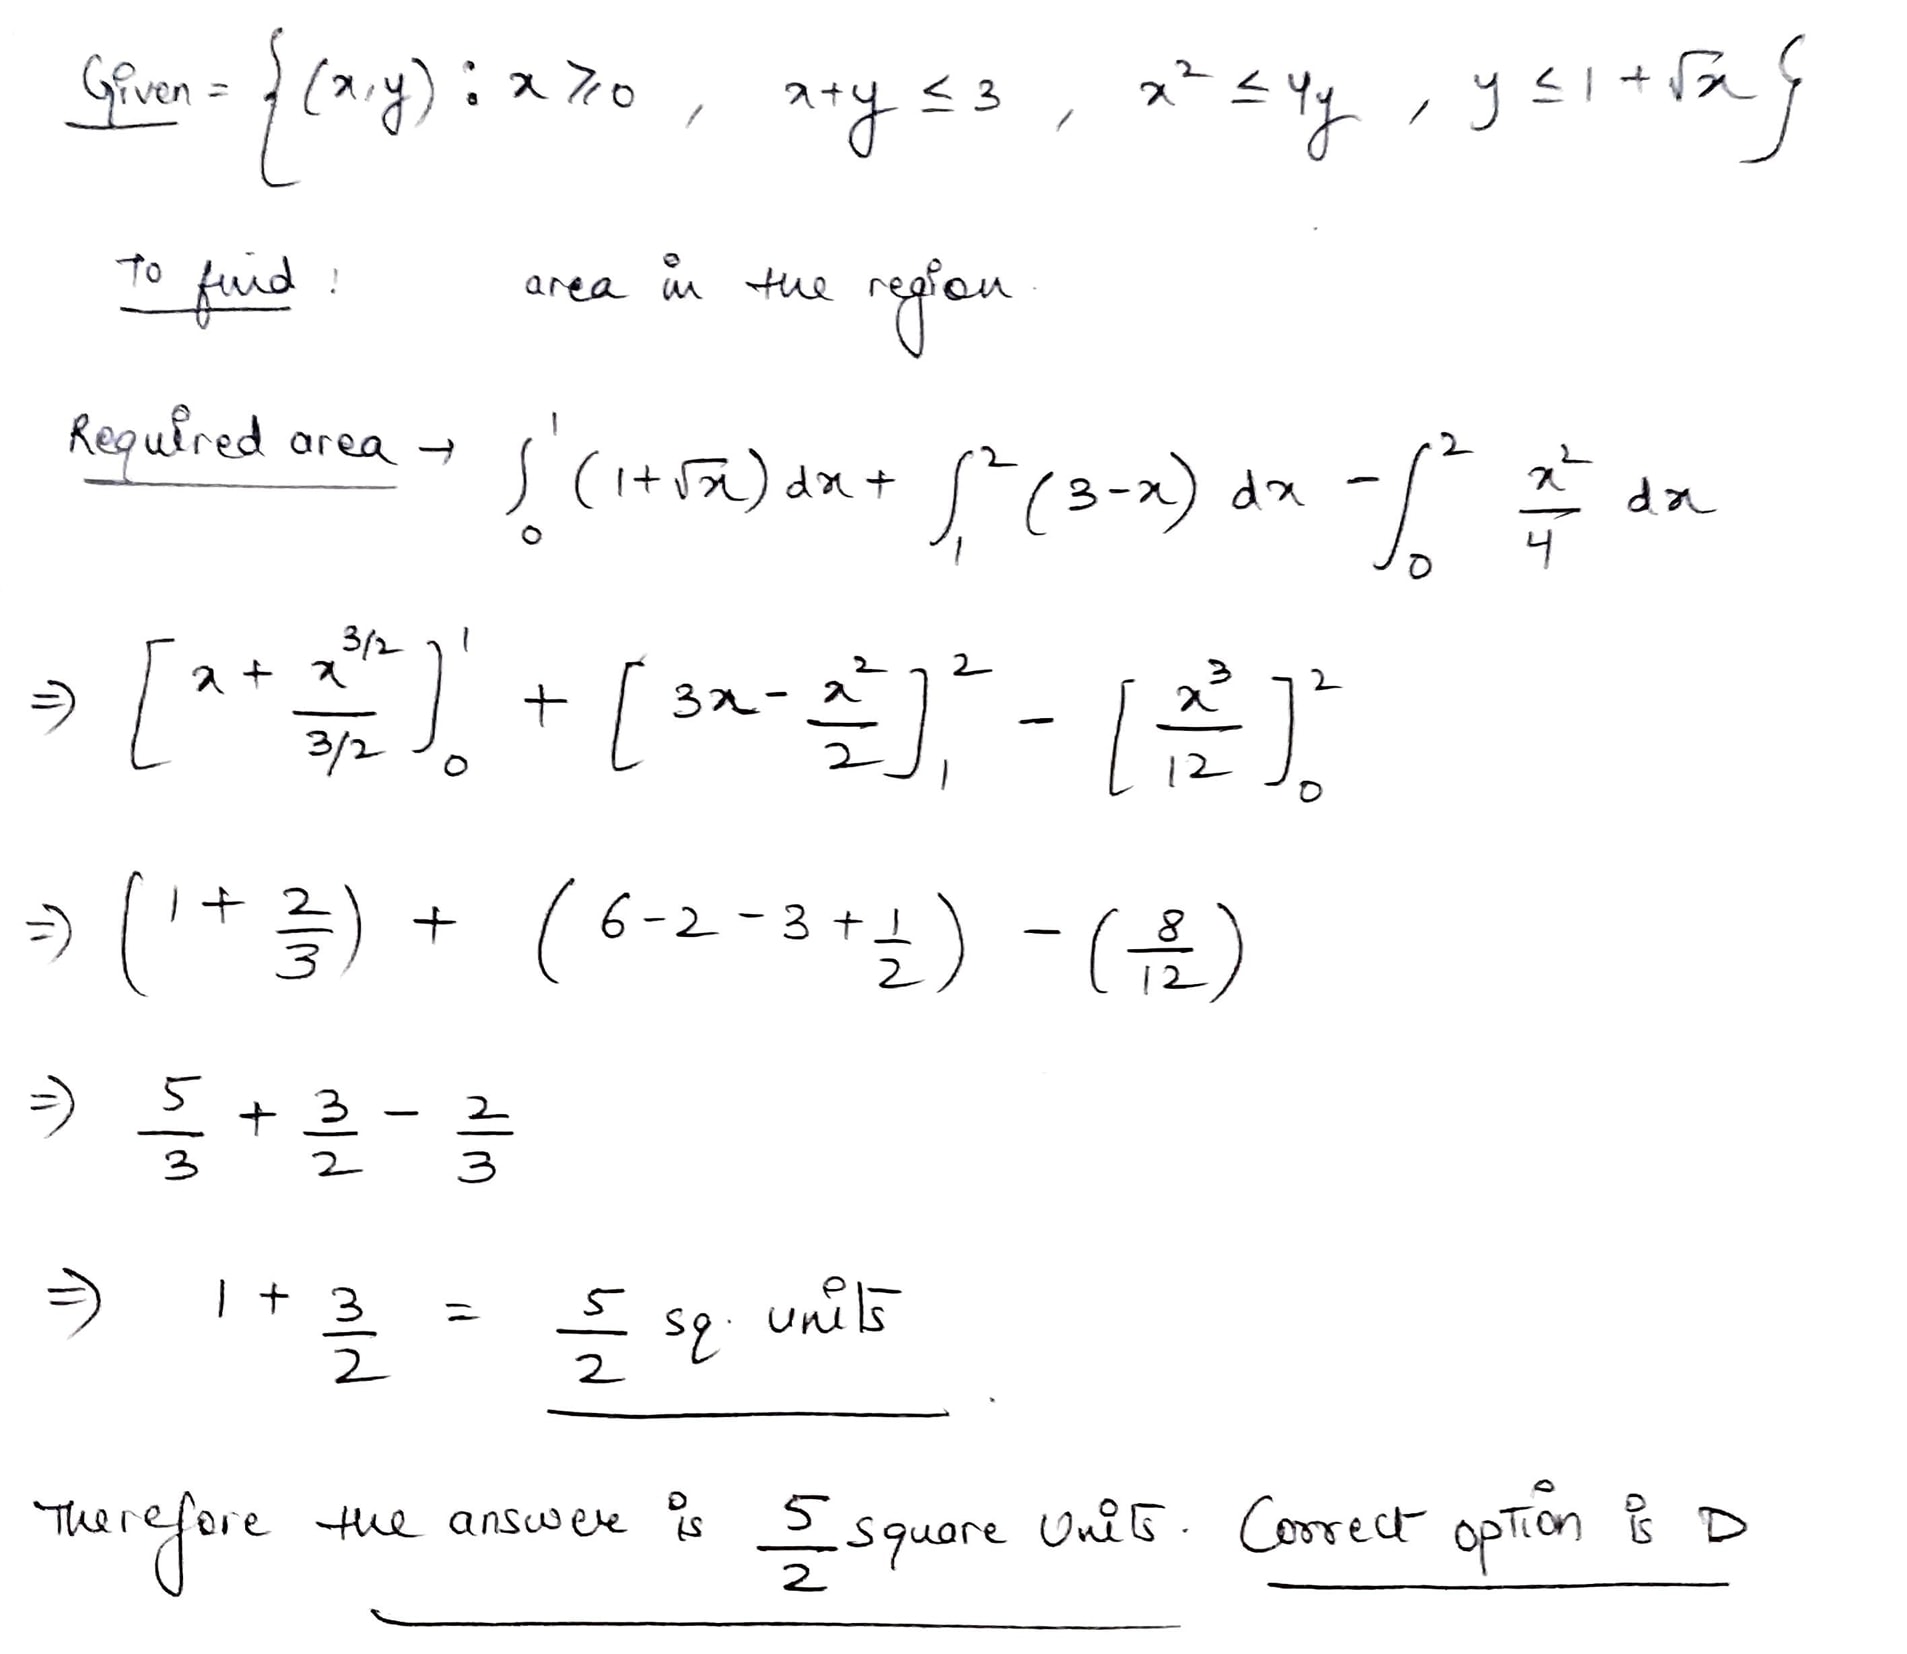 Given = {(x,y) : x ≥ 0 , x+y ≤ 3 , x² ≤ 4y , y ≤ 1 + √x}
To find : area in the region.
Required area → ∫₀¹ (1+√x) dx + ∫₁² (3-x) dx - ∫₀² x²/4 dx
⇒ [x + x^(3/2)/(3/2)]₀¹ + [3x - x²/2]₁² - [x³/12]₀²
⇒ (1 + 2/3) + (6-2-3+1/2) - (8/12)
⇒ 5/3 + 3/2 - 2/3
⇒ 1 + 3/2 = 5/2 sq. units
Therefore the answere is 5/2 square units. Correct option is D